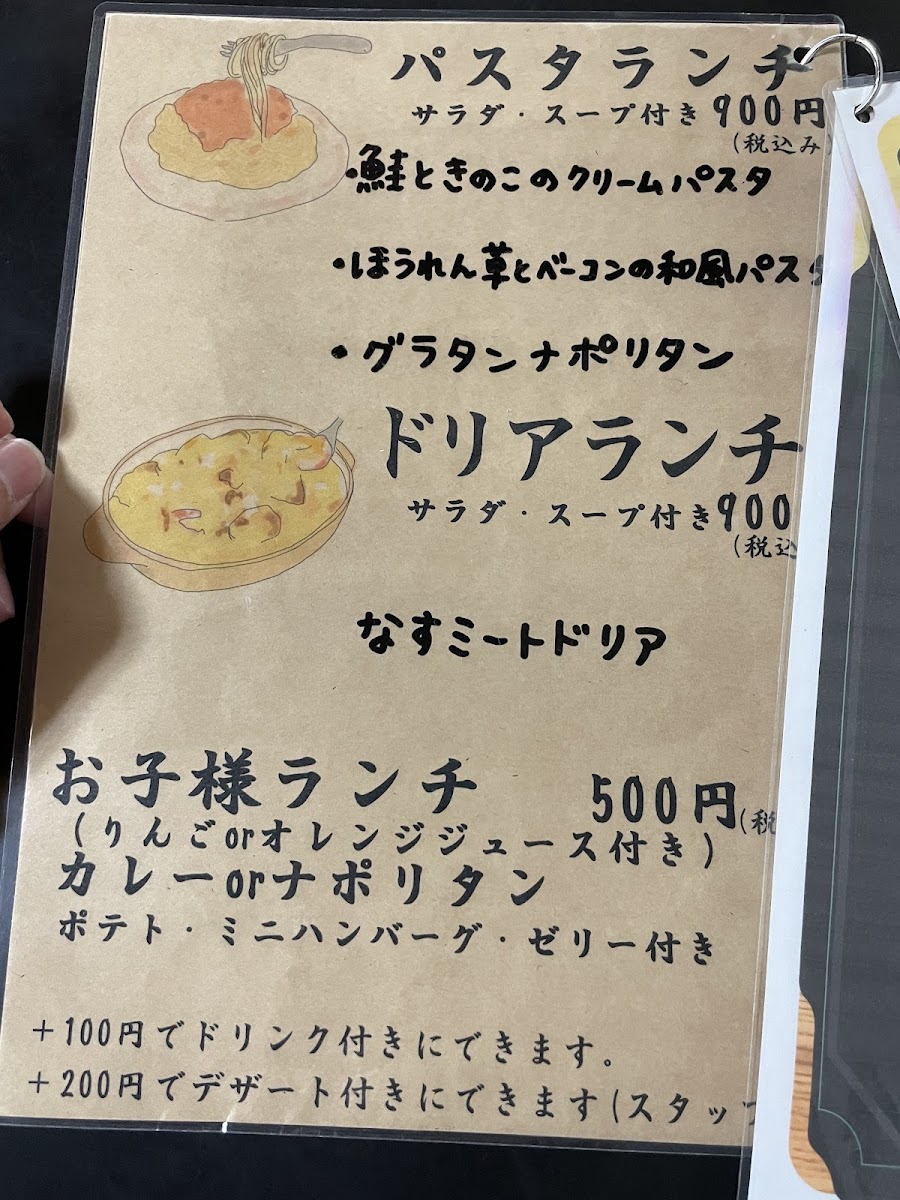 パスタランチ
サラダ・スープ付き 900円
(税込み)
・鮭ときのこのクリームパスタ
・ほうれん草とベーコンの和風パスタ
・グラタンナポリタン
ドリアランチ
サラダ・スープ付き 900
(税込
なすミートドリア
お子様ランチ 500円(税
(りんごorオレンジジュース付き)
カレーorナポリタン
ポテト・ミニハンバーグ・ゼリー付き
+100円でドリンク付きにできます。
+200円でデザート付きにできます(スタッフ